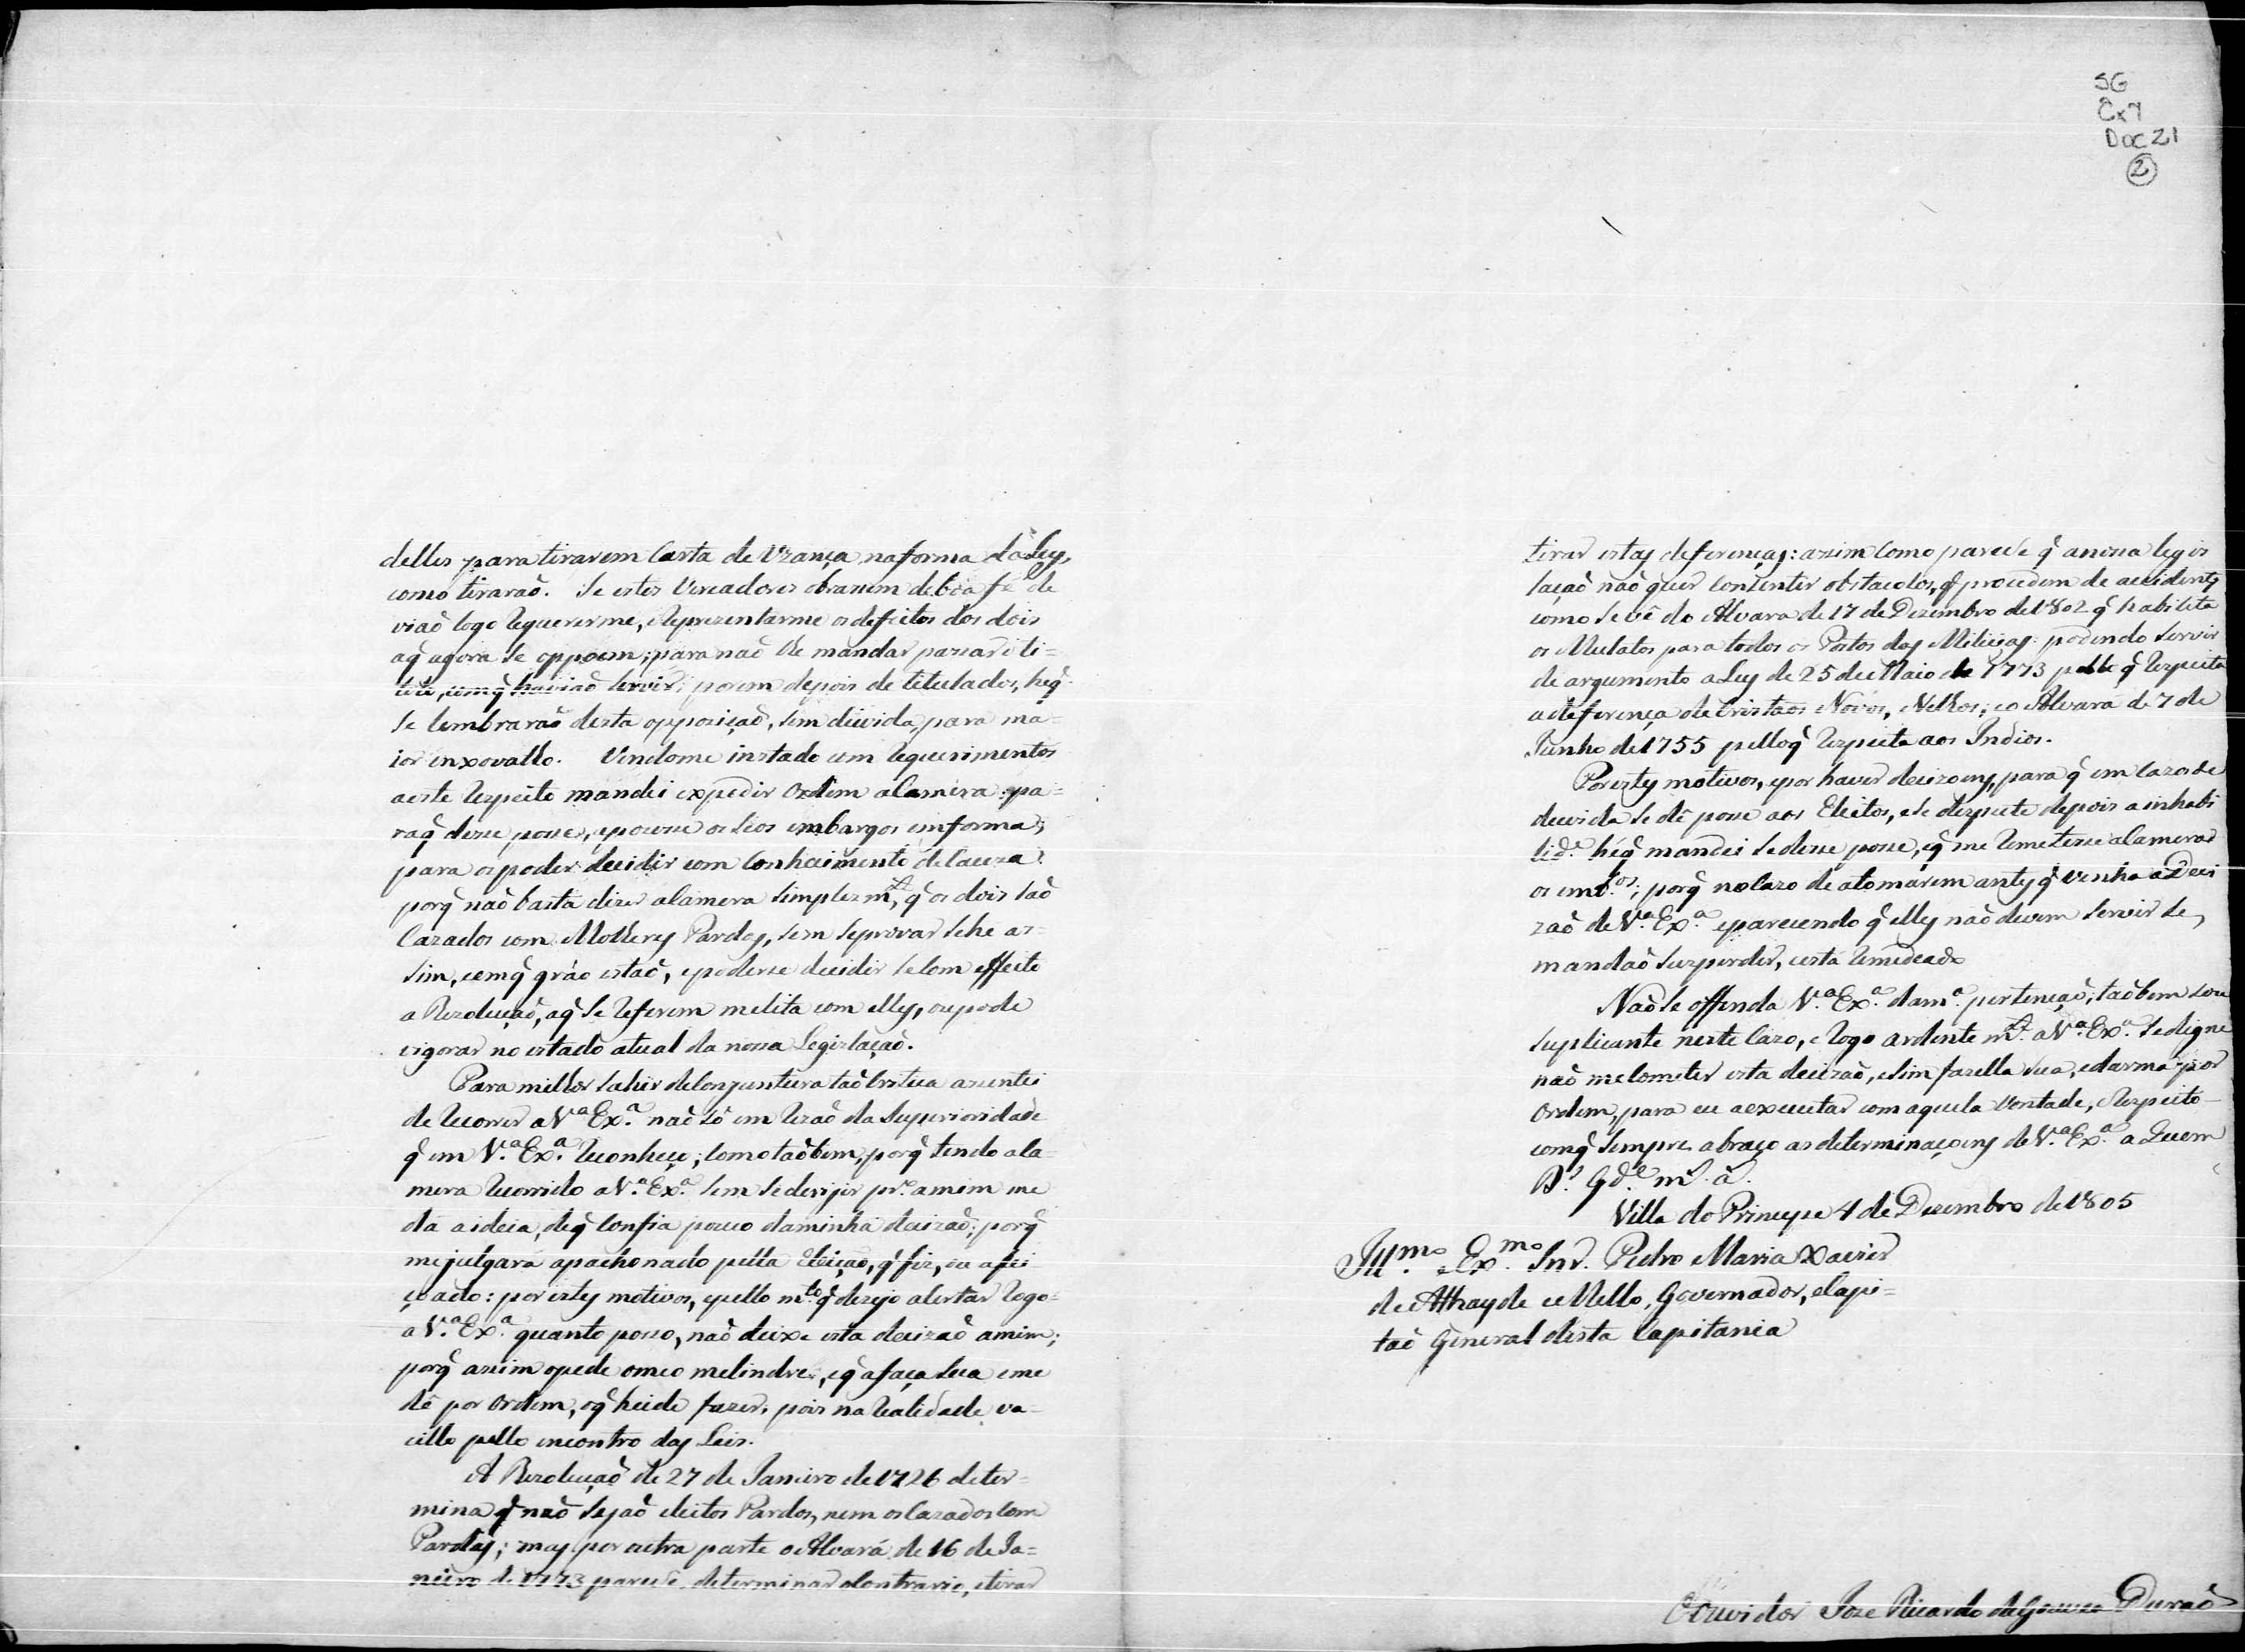 SG
Cx 7
Doc 21
2
delles para tirarem Carta de Uzança na forma da Ley,
como tiraraõ. Se estes Vereadores obrassem de boa fé de
viaõ logo requererme, e reprezentarme os defeitos dos dois
aq̃ agora se oppoem; para naõ lhe mandar passar o ti-
tulo, com q̃ haviaõ servir; porem depois de titulados, he q̃
se lembraraõ desta oppoziçaõ, sem duvida, para ma-
ior enxovalho. Vendome instado com requerimentos
a este respeito mandei expedir Ordem a Camera, pa-
ra q̃ desse posse, e pozesse os seos embargos em forma,
para os poder decidir com conhecimento de cauza:
porq̃ naõ basta dizer a Camera simplesm.te, q̃ os dois saõ
Cazados com Molheres Pardas, sem se provar se he as-
sim, e em q̃ gráo estaõ, e poderse decidir se com effeito
a Rezoluçaõ, aq̃ se referem melita com elles, ou pode
vigorar no estado atual da nossa Legislaçaõ.
Para milhor sahir de conjuntura taõ critica assentei
de recorrer a V.a Ex.a naõ só em rezaõ da Superioridade
q̃ em V.a Ex.a reconheço; como taõbem, porq̃ tendo a Ca-
mera recorrido a V.a Ex.a sem se derigir pr.o a mim me
dá a ideia, de q̃ confia pouco da minha decizaõ; porq̃
me julgará apachonado pella eleiçaõ, q̃ fiz, ou afei-
çoado: por estes motivos, e pello m.to q̃ dezejo acertar rogo
a V.a Ex.a quanto posso, naõ deixe esta decizaõ a mim;
porq̃ assim o pede o meo melindre, e q̃ a faça sua e me
dê por Ordem, o q̃ heide fazer, pois na realidade va-
cillo pello encontro das Leis.
A Rezoluçaõ de 27 de Janeiro de 1726 deter-
mina q̃ naõ sejaõ eleitos Pardos, nem os Cazados com
Pardas; mas por outra parte o Alvará de 16 de Ja-
neiro de 1773 parece determinar o contrario, e tirar
tirar estas deferenças: assim como parece q̃ a nossa legis
laçaõ naõ quer consentir obstacolos, q̃ procedem de accidentes
como se vê do Alvara de 17 de Dezembro de 1802 q̃ habilita
os Mulatos para todos os Postos das Milicias: podendo servir
de argumento a Ley de 25 de Maio de 1773 pello q̃ respeita
a deferença de Cristaos Novos, e Velhos; e o Alvará de 7 de
Junho de 1755 pello q̃ respeita aos Indios.
Por estes motivos, e por haver decizoens, para q̃ em cazos de
duvida se dê posse aos Eleitos, e se dispute depois a inhabi
lid.e he q̃ mandei se desse posse, e q̃ me remetesse a Camera
os emb.os; porq̃ no cazo de a tomarem antes q̃ venha a Deci
zaõ de V.a Ex.a e parecendo q̃ elles naõ devem servir se
mandaõ suspender, e está remedeado
Naõ se offenda V.a Ex.a da m.a pertençaõ; taõbem sou
suplicante neste cazo, e rogo ardente m.te a V.a Ex.a se digne
naõ me cometer esta decizaõ, e sim fazella sua, e darma por
Ordem, para eu a executar com aquela vontade, e respeito
com q̃ sempre abraço as determinaçoens de V.a Ex.a a Quem
D.s G.de m.s a.s
Villa do Principe 4 de Dezembro de 1805
Ill.mo e Ex.mo Snr. Pedro Maria Xavier
de Athayde e Mello, Governador, e Capi-
taõ General desta Capitania
O Ouvidor Joze Ricardo de Gouvea Duraõ